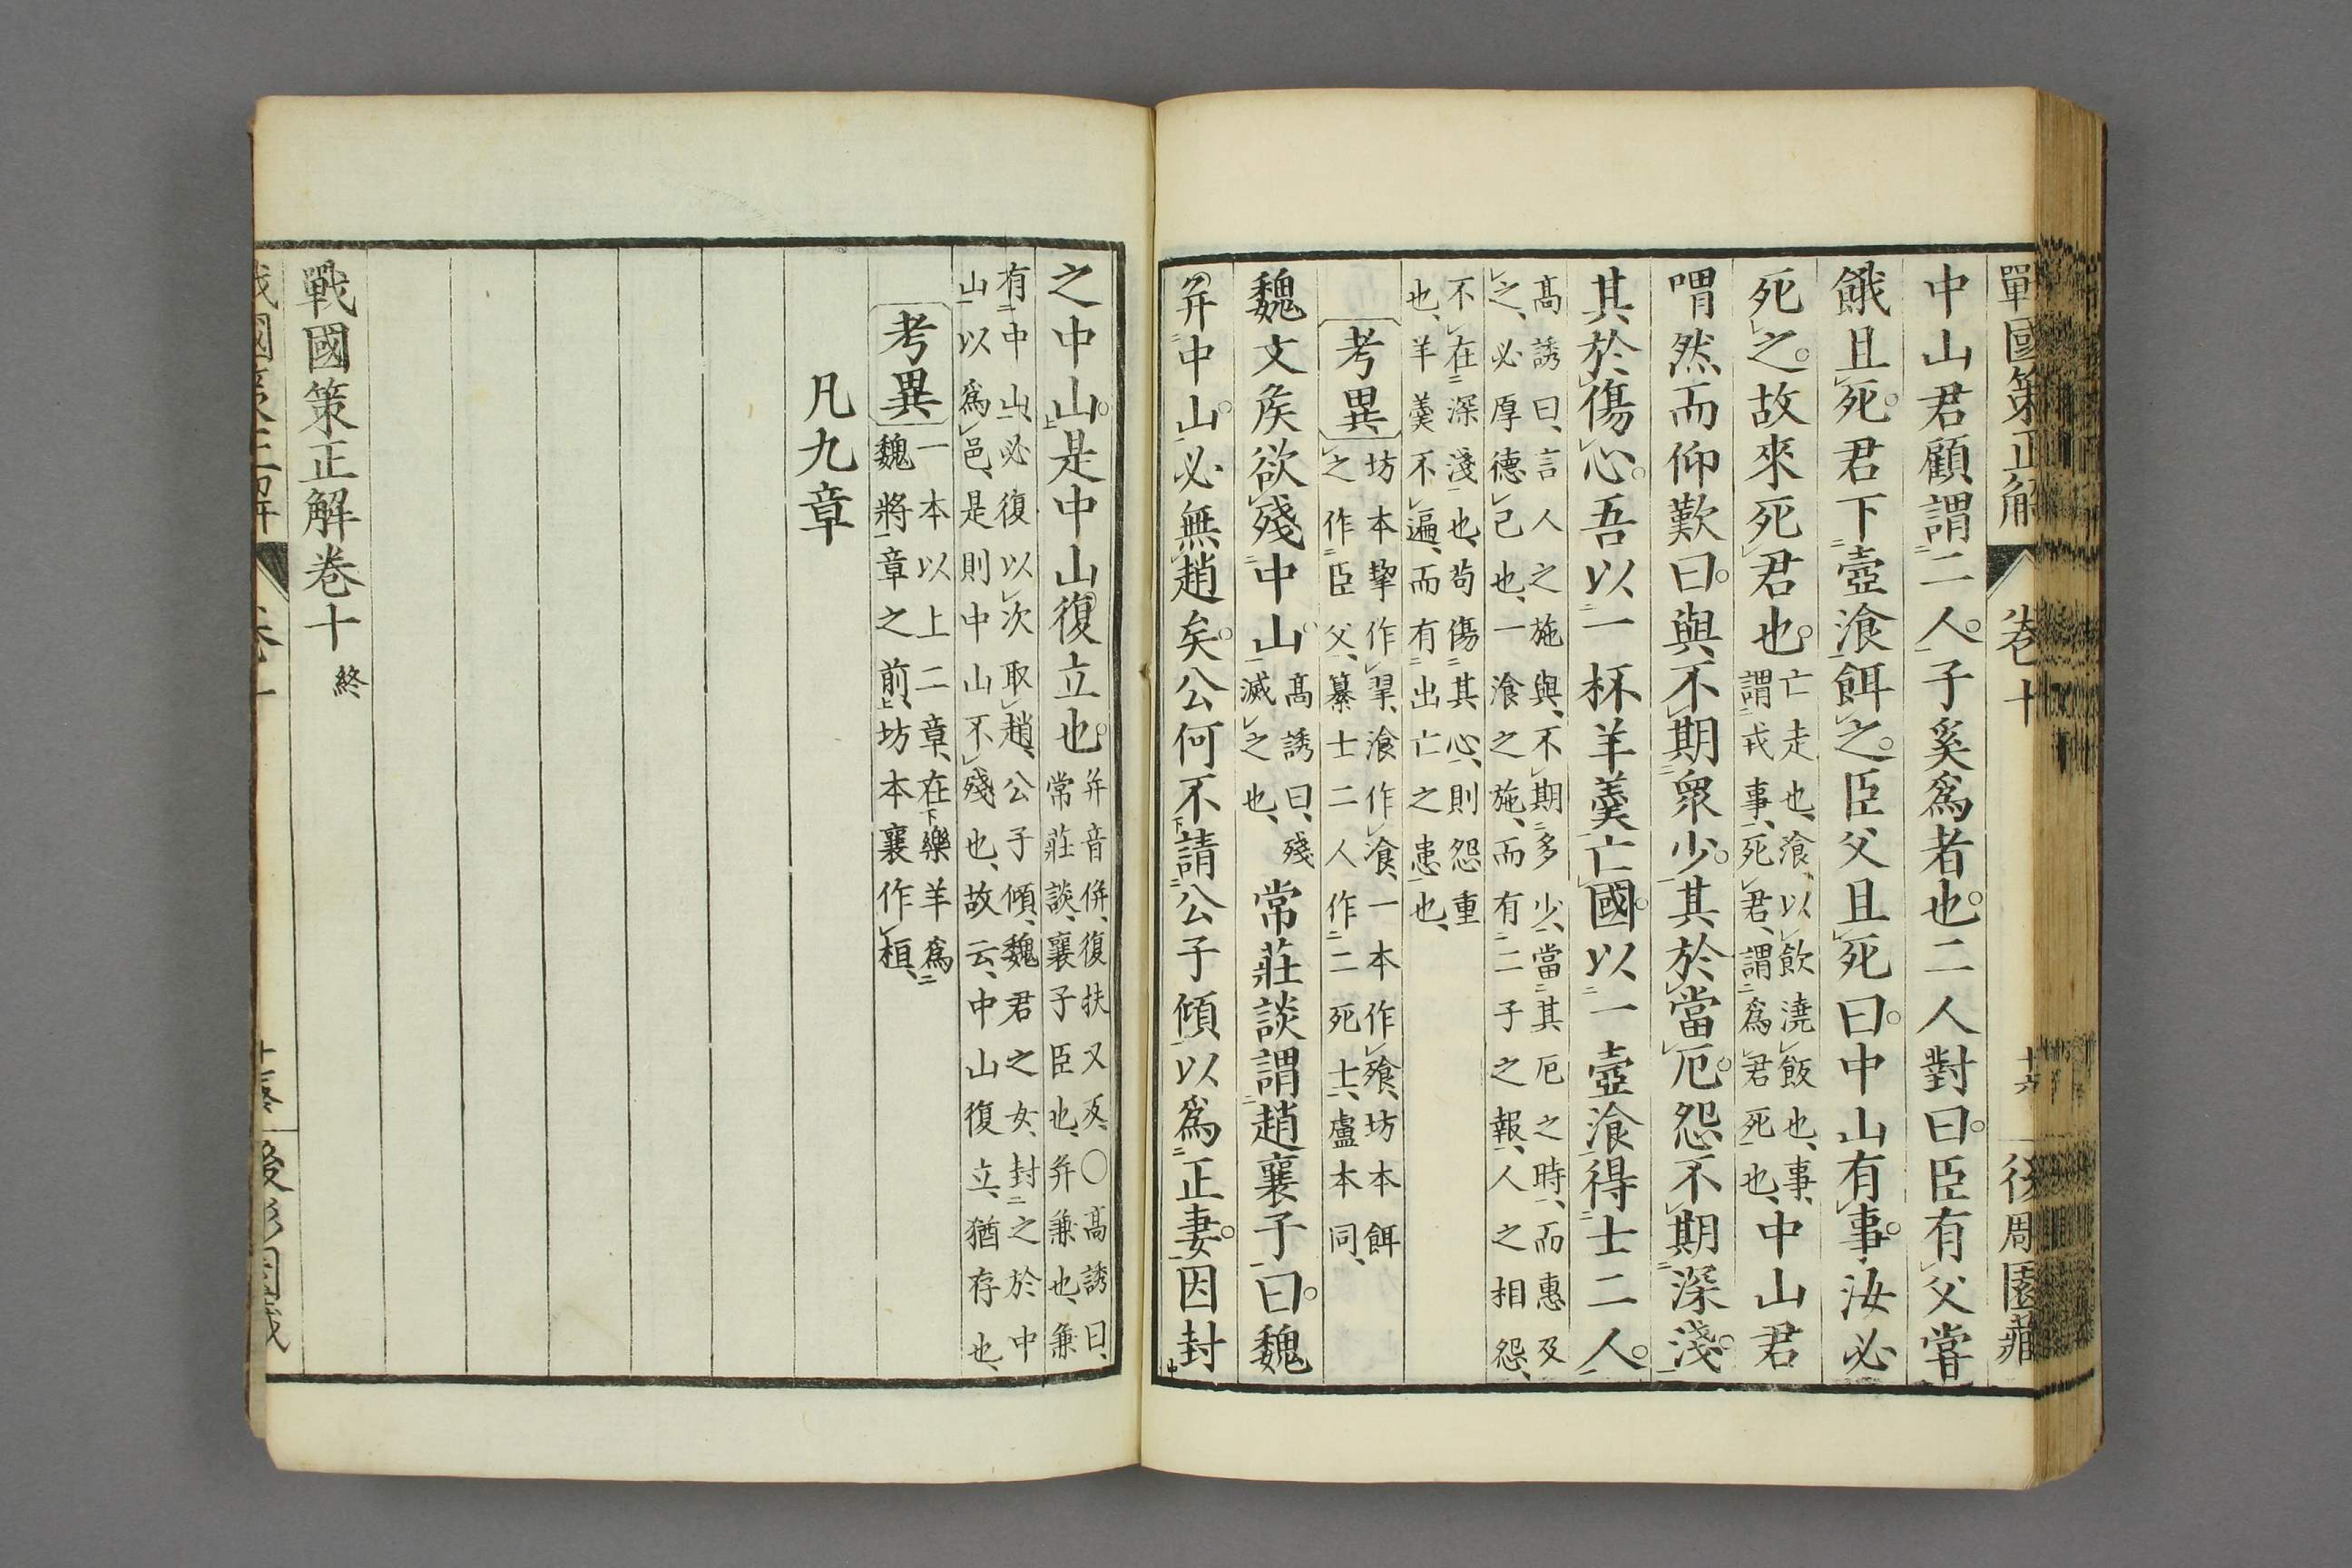 戰國策正解 卷十 十六 後周園藏
中山君顧謂二人。子奚爲者也。二人對曰。臣有父嘗
餓且死。君下壺飡餌之。臣父且死曰。中山有事。汝必
死之。故來死君也。
亡走也、飡、以飲澆飯也、事、
謂戎事、死君、謂爲君死也、
中山君
喟然而仰歎曰。與不期衆少。其於當厄。怨不期深淺。
其於傷心。吾以一杯羊羹亡國。以一壺飡得士二人。
高誘曰、言人之施與、不期多少、當其厄之時、而惠及
之、必厚德己也、一飡之施、而有二子之報、人之相怨、
不在深淺也、苟傷其心、則怨重
也、羊羹不遍、而有出亡之患也、
考異
坊本挚作羿、飡作飡、一本作飱、坊本餌
之作臣父、纂士二人作二死士、盧本同、
魏文矦欲殘中山。
高誘曰、殘
滅之也、
常莊談謂趙襄子曰。魏
幷中山。必無趙矣。公何不請公子傾以爲正妻。因封
之中山。是中山復立也。
幷音併、復扶又反、〇高誘曰、
常莊談、襄子臣也、幷兼也、兼
有中山、必復以次取趙、公子傾、魏君之女、封之於中
山以爲邑、是則中山不殘也、故云、中山復立、猶存也、
考異
一本以上二章、在樂羊爲
魏將章之前、坊本襄作桓、
凡九章
戰國策正解卷十終